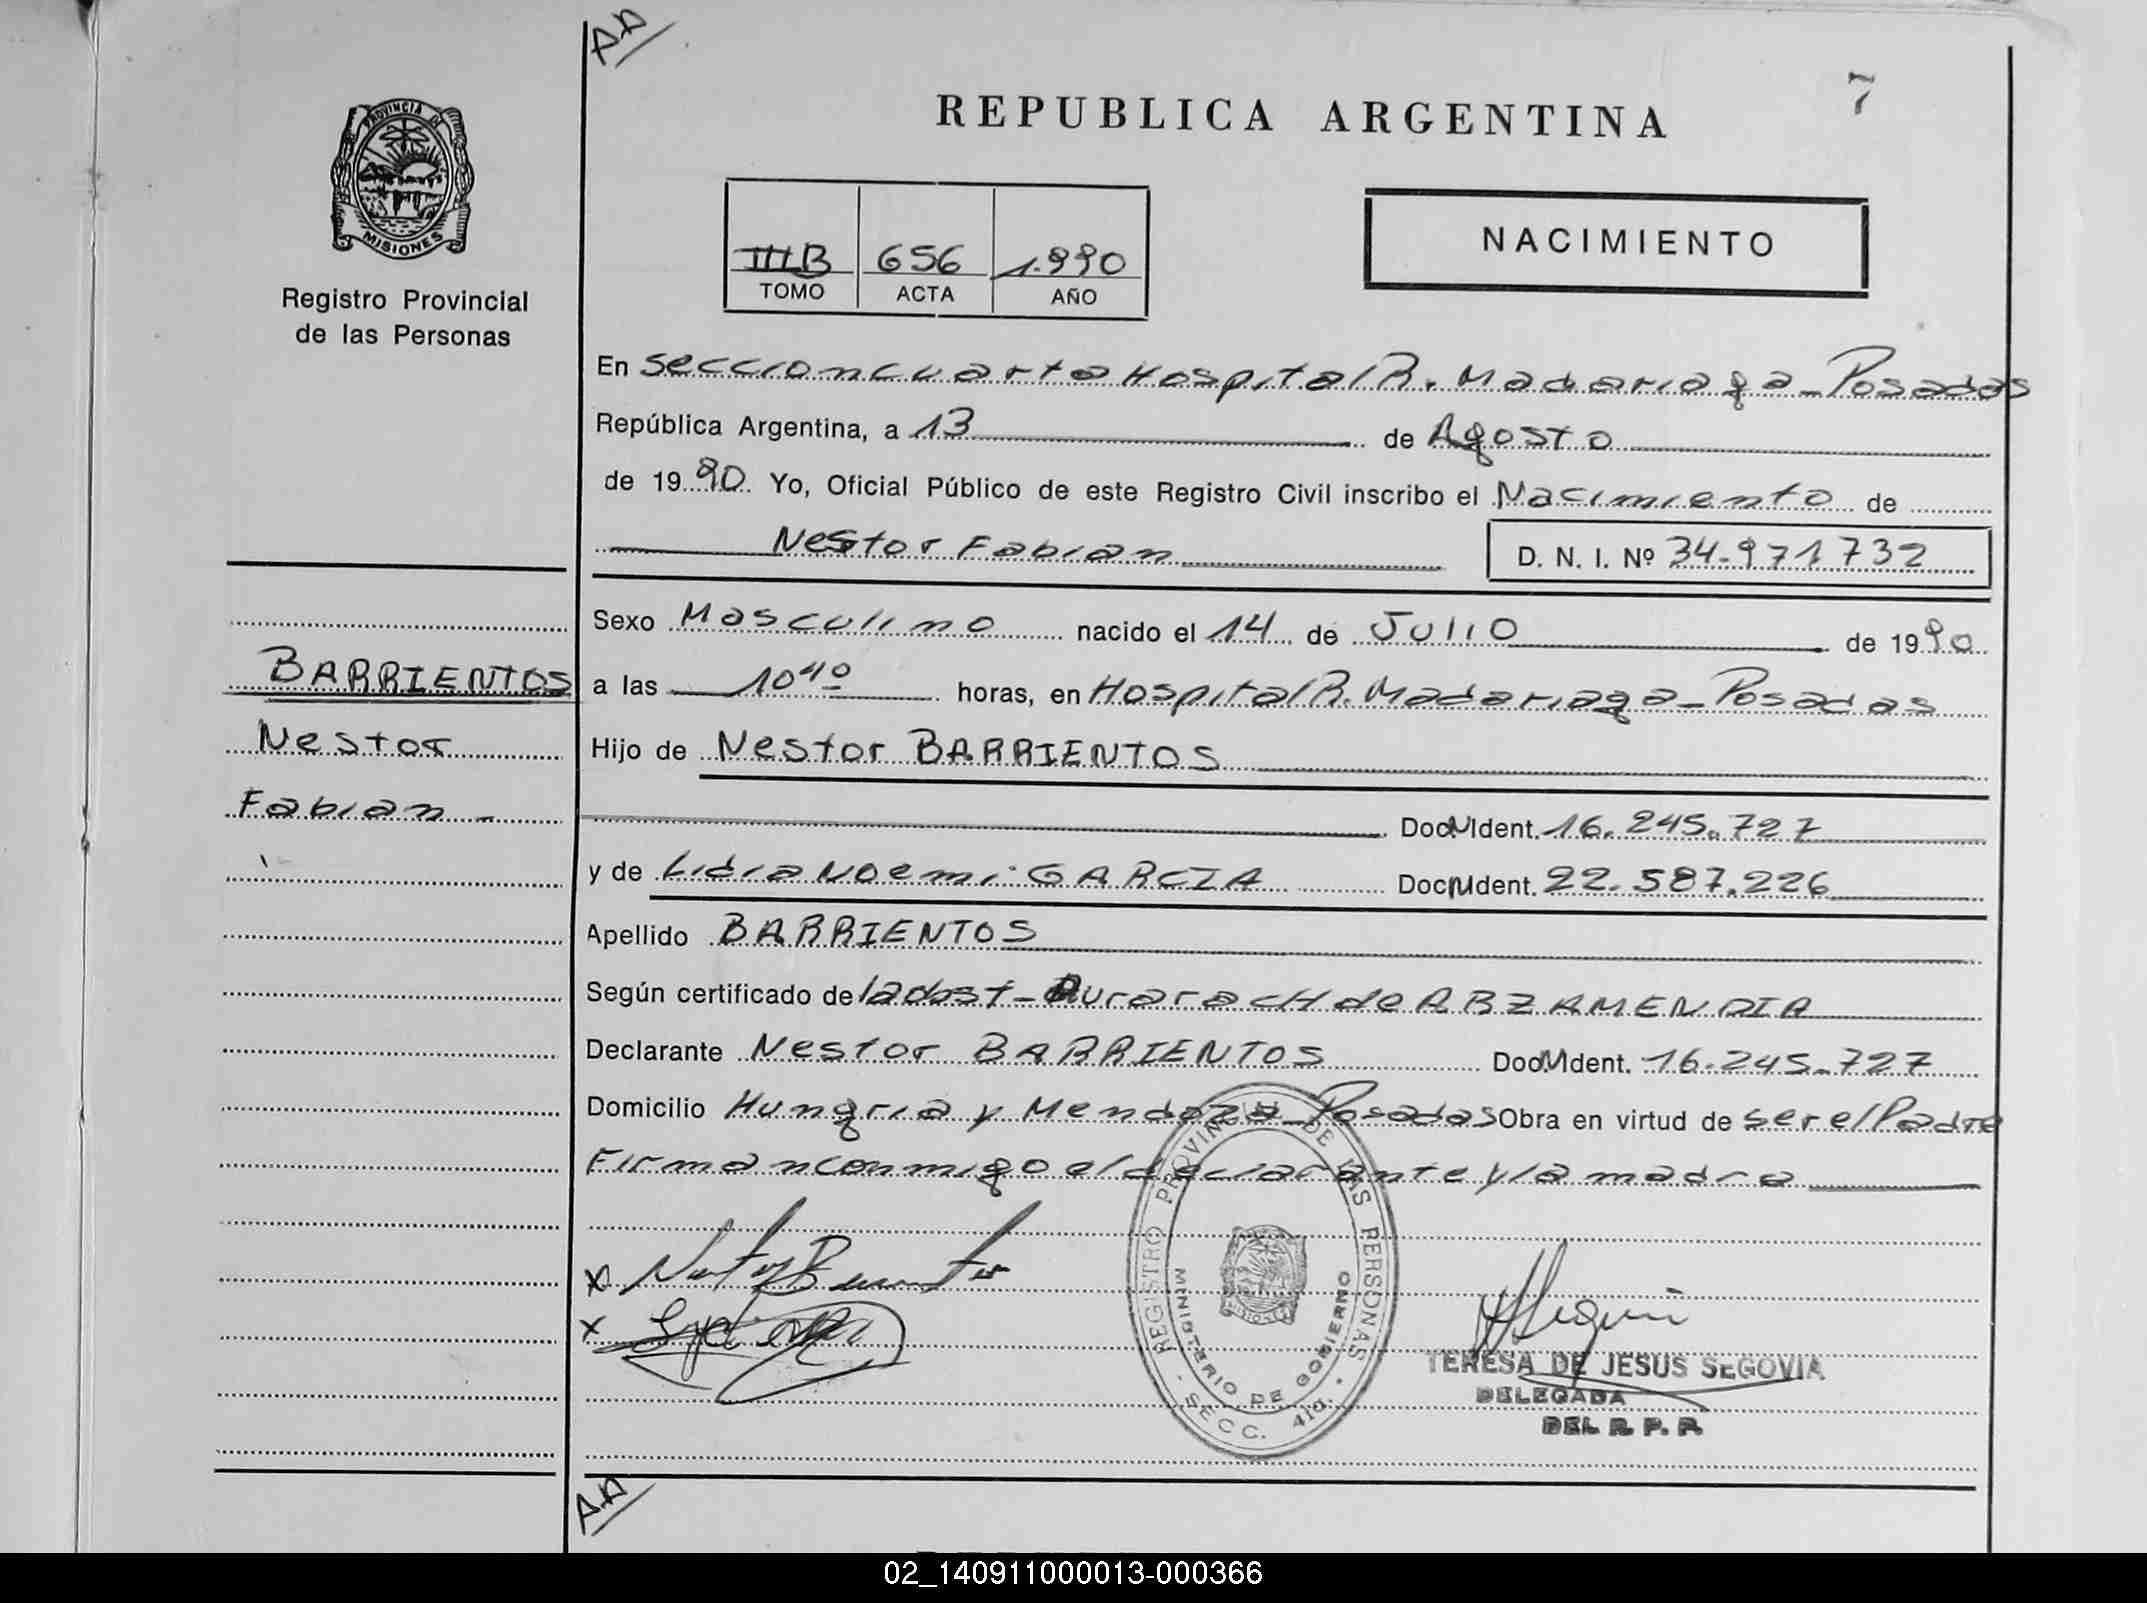 AA
7
REPUBLICA ARGENTINA
PROVINCIA DE
MISIONES
Registro Provincial
de las Personas
IIIB 656 1.990
TOMO ACTA AÑO
NACIMIENTO
En Seccion cuarta Hospital R. Madariaga - Posadas
República Argentina, a 13 de Agosto
de 1990 Yo, Oficial Público de este Registro Civil inscribo el Nacimiento de
Nestor Fabian
D. N. I. Nº 34.971732
Sexo Masculino nacido el 14 de Julio de 1990
a las 10 40 horas, en Hospital R. Madariaga - Posadas
Hijo de Nestor BARRIENTOS
Doc N Ident. 16.245.727
y de Lidia Noemi GARCIA Doc N Ident. 22.587.226
Apellido BARRIENTOS
Según certificado de la obst - Aurara CH de ARZAMENDIA
Declarante Nestor BARRIENTOS Doc N Ident. 16.245.727
Domicilio Hungria y Mendoza - Posadas Obra en virtud de ser el Padre
Firman conmigo el declarante y la madre
BARRIENTOS
Nestor
Fabian -
x
x
REGISTRO PROVINCIAL DE LAS PERSONAS
MINISTERIO DE GOBIERNO
- SECC. 4ta. -
TERESA DE JESUS SEGOVIA
DELEGADA
DEL R. P. P.
AA
02_140911000013-000366